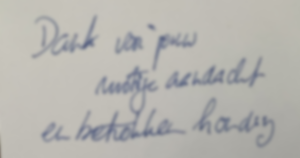 Dank voor jouw
rustige aandacht
en betrokken houding